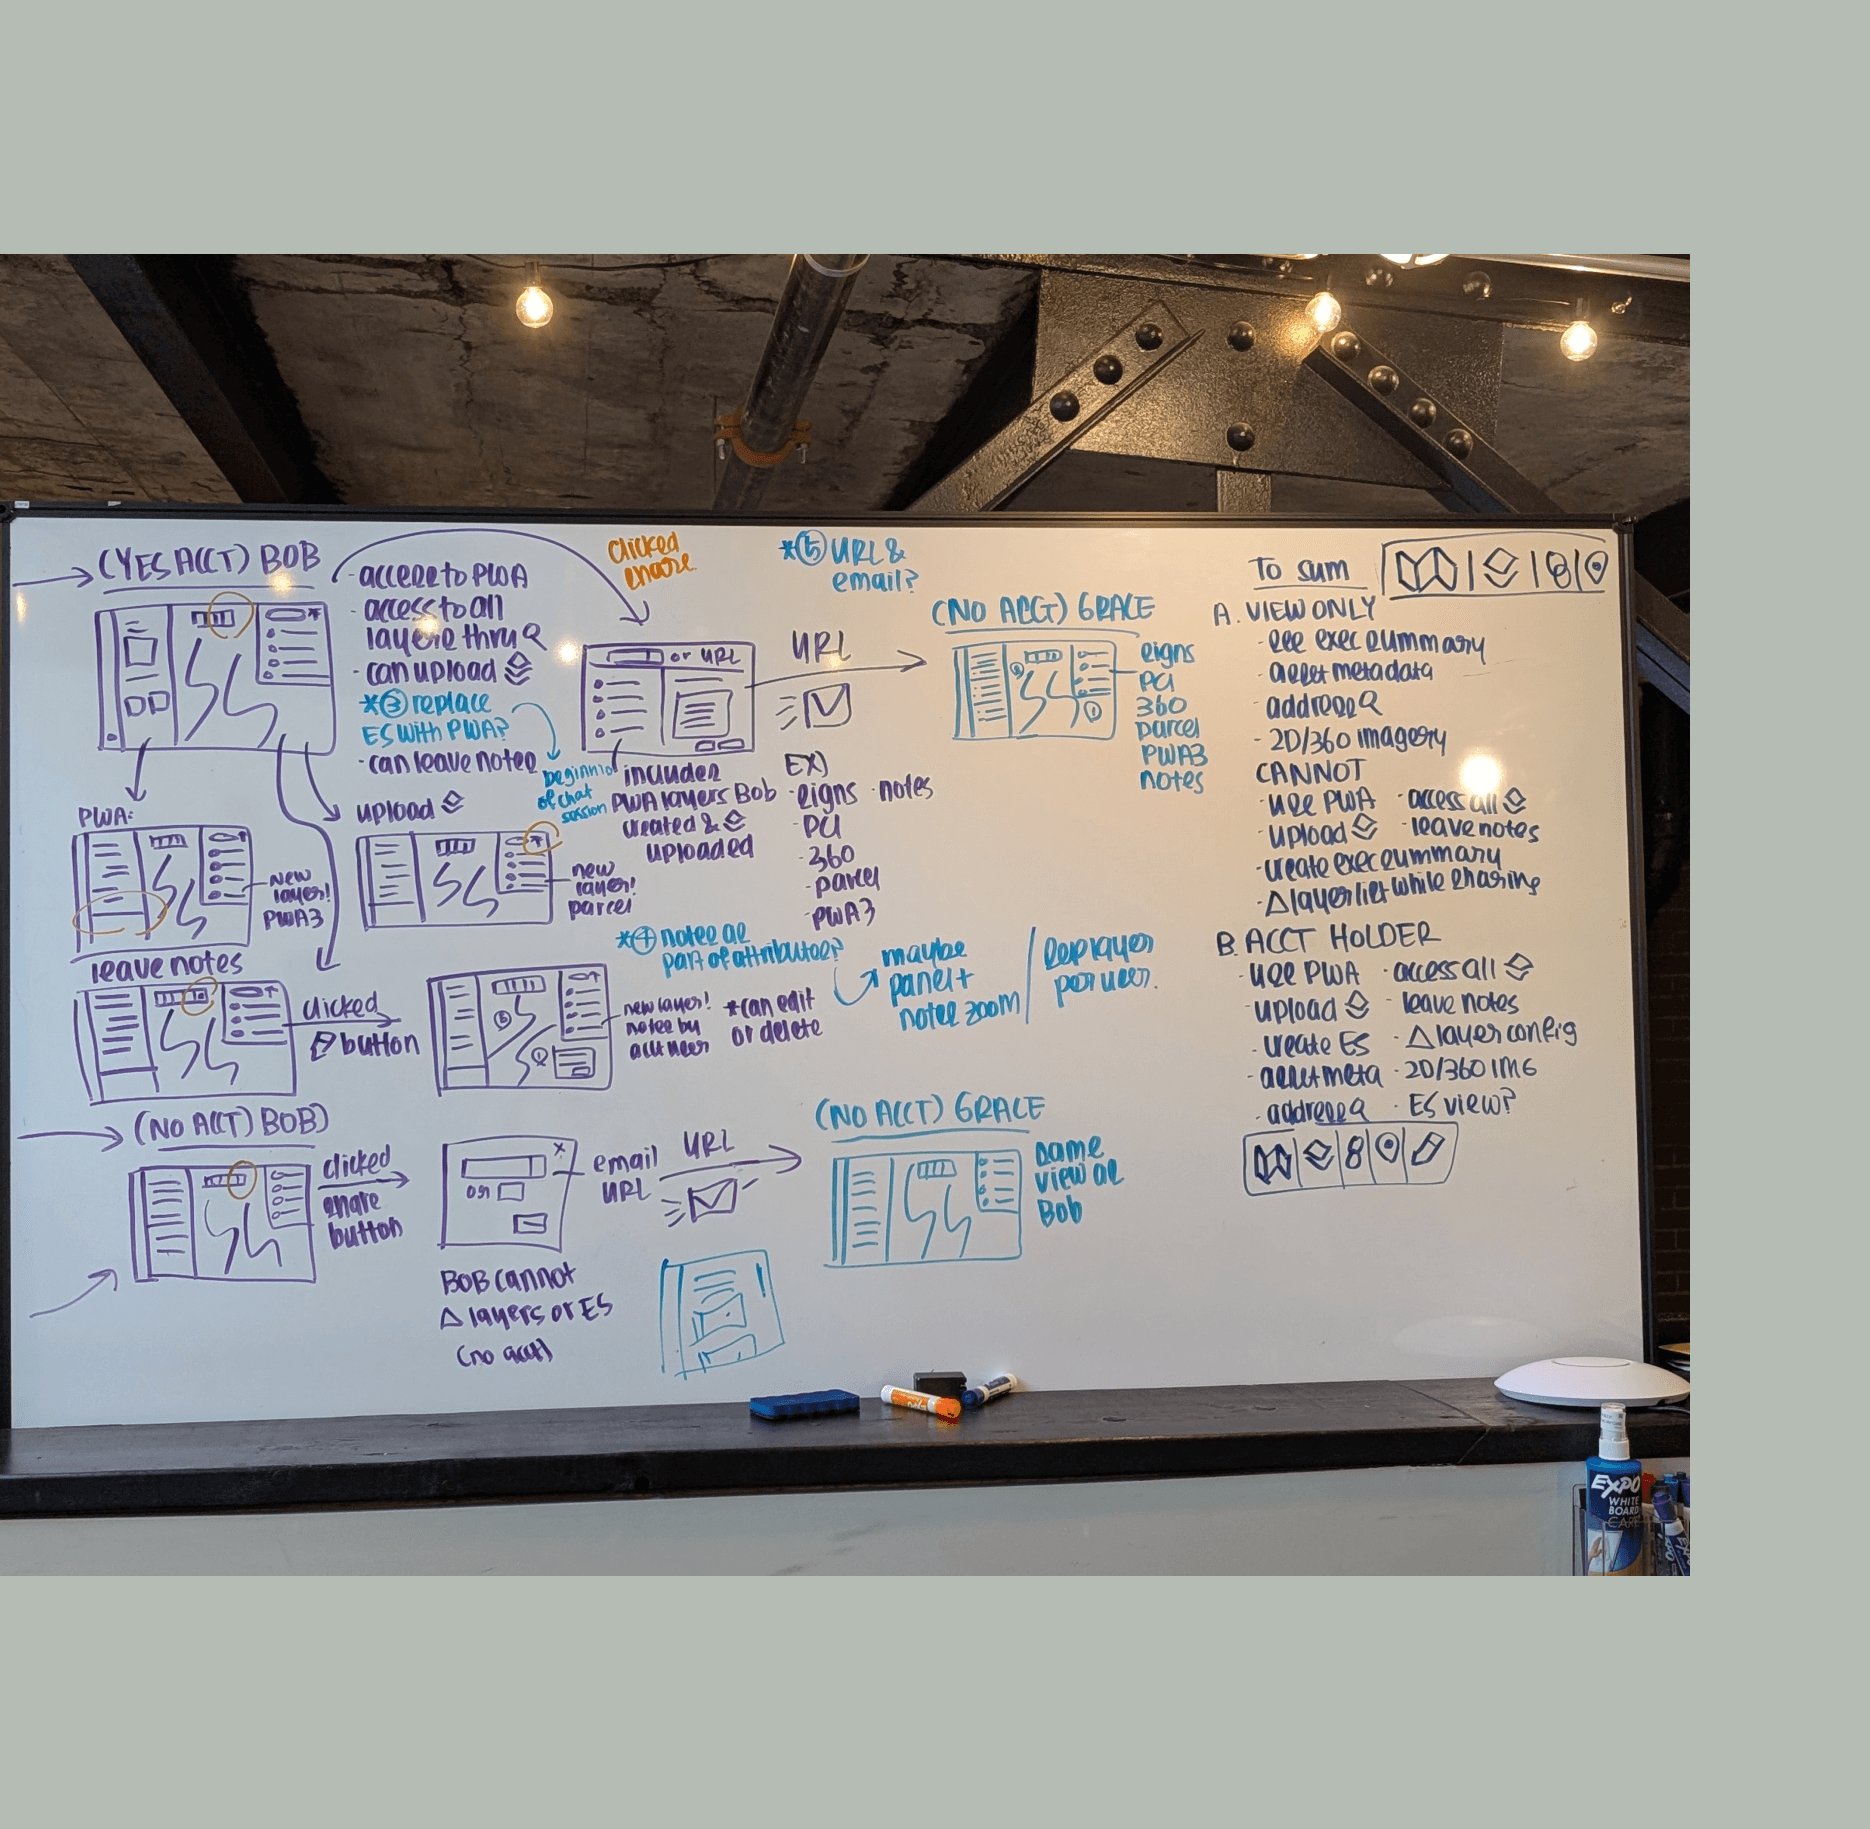 (YES ACCT) BOB
- access to PWA
- access to all
layers thru
- can upload
*③ replace
ES with PWA?
- can leave notes
beginning
of chat
session
clicked
share
or URL
URL
*⑤ URL &
email?
(NO ACCT) GRACE
signs
PCI
360
parcel
PWA3
notes
includes
PWA layers Bob
created &
uploaded
EX)
- signs - notes
- PCI
- 360
- parcel
- PWA3
PWA:
new
layer!
PWA3
upload
new
layer!
parcel
leave notes
clicked
button
*④ notes as
part of attributes?
maybe
panel +
notes zoom
sep layer
per user.
new layer!
notes by
acct user
*can edit
or delete
(NO ACCT) BOB)
clicked
share
button
or
email
URL
URL
BOB cannot
Δ layers or ES
(no acct)
(NO ACCT) GRACE
same
view as
Bob
To sum
A. VIEW ONLY
- see exec summary
- asset metadata
- address
- 2D/360 imagery
CANNOT
- use PWA - access all
- upload - leave notes
- create exec summary
- Δ layer list while sharing
B. ACCT HOLDER
- use PWA - access all
- upload - leave notes
- create ES - Δ layer config
- asset meta - 2D/360 IMG
- address - ES view?
EXPO
WHITE
BOARD
CARE